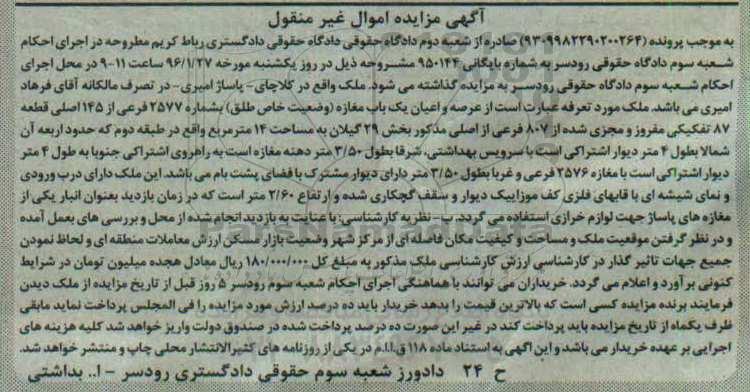 آگهی مزایده اموال غیر منقول
به موجب پرونده (۹۳۰۹۹۸۲۲۹۰۲۰۰۲۶۴) صادره از شعبه دوم دادگاه حقوقی دادگاه حقوقی دادگستری رباط کریم مطروحه در اجرای احکام
شعبه سوم دادگاه حقوقی رودسر به شماره بایگانی ۹۵۰۱۴۴ مشروحه ذیل در روز یکشنبه مورخه ۹۶/۱/۲۷ ساعت ۱۱-۹ در محل اجرای
احکام شعبه سوم دادگاه حقوقی رودسر به مزایده گذاشته می شود. ملک واقع در کلاچای- پاساژ امیری- در تصرف مالکانه آقای فرهاد
امیری می باشد. ملک مورد تعرفه عبارت است از عرصه و اعیان یک باب مغازه (وضعیت خاص طلق) بشماره ۲۵۷۷ فرعی از ۱۴۵ اصلی قطعه
۸۷ تفکیکی مفروز و مجزی شده از ۸۰۷ فرعی از اصلی مذکور بخش ۲۹ گیلان به مساحت ۱۴ مترمربع واقع در طبقه دوم که حدود اربعه آن
شمالا بطول ۴ متر دیوار اشتراکی است با سرویس بهداشتی، شرقا بطول ۳/۵۰ متر دهنه مغازه است به راهروی اشتراکی جنوبا به طول ۴ متر
دیوار اشتراکی است با مغازه ۲۵۷۶ فرعی و غربا بطول ۳/۵۰ متر دارای دیوار مشترک با فضای پشت بام می باشد. این ملک دارای درب ورودی
و نمای شیشه ای با قابهای فلزی کف موزاییک دیوار و سقف گچکاری شده و ارتفاع ۲/۶۰ متر است که در زمان بازدید بعنوان انبار یکی از
مغازه های پاساژ جهت لوازم خرازی استفاده می گردد. ب- نظریه کارشناسی: با عنایت به بازدید انجام شده از محل و بررسی های بعمل آمده
و در نظر گرفتن موقعیت ملک و مساحت و کیفیت مکان فاصله ای از مرکز شهر وضعیت بازار مسکن ارزش معاملات منطقه ای و لحاظ نمودن
جمیع جهات تاثیر گذار در کارشناسی ارزش کارشناسی ملک مذکور به مبلغ کل ۱۸۰/۰۰۰/۰۰۰ ریال معادل هجده میلیون تومان در شرایط
کنونی برآورد و اعلام می گردد. خریداران می توانند با هماهنگی اجرای احکام شعبه سوم رودسر ۵ روز قبل از تاریخ مزایده از ملک دیدن
فرمایند برنده مزایده کسی است که بالاترین قیمت را بدهد خریدار باید ده درصد ارزش مورد مزایده را فی المجلس پرداخت نماید مابقی
ظرف یکماه از تاریخ مزایده باید پرداخت کند در غیر این صورت ده درصد پرداخت شده در صندوق دولت واریز خواهد شد کلیه هزینه های
اجرایی بر عهده خریدار می باشد و این اگهی به استناد ماده ۱۱۸ ق.ا.ا.م در یکی از روزنامه های کثیرالانتشار محلی چاپ و منتشر خواهد شد.
ح ۲۴ دادورز شعبه سوم حقوقی دادگستری رودسر - ا.. بداشتی